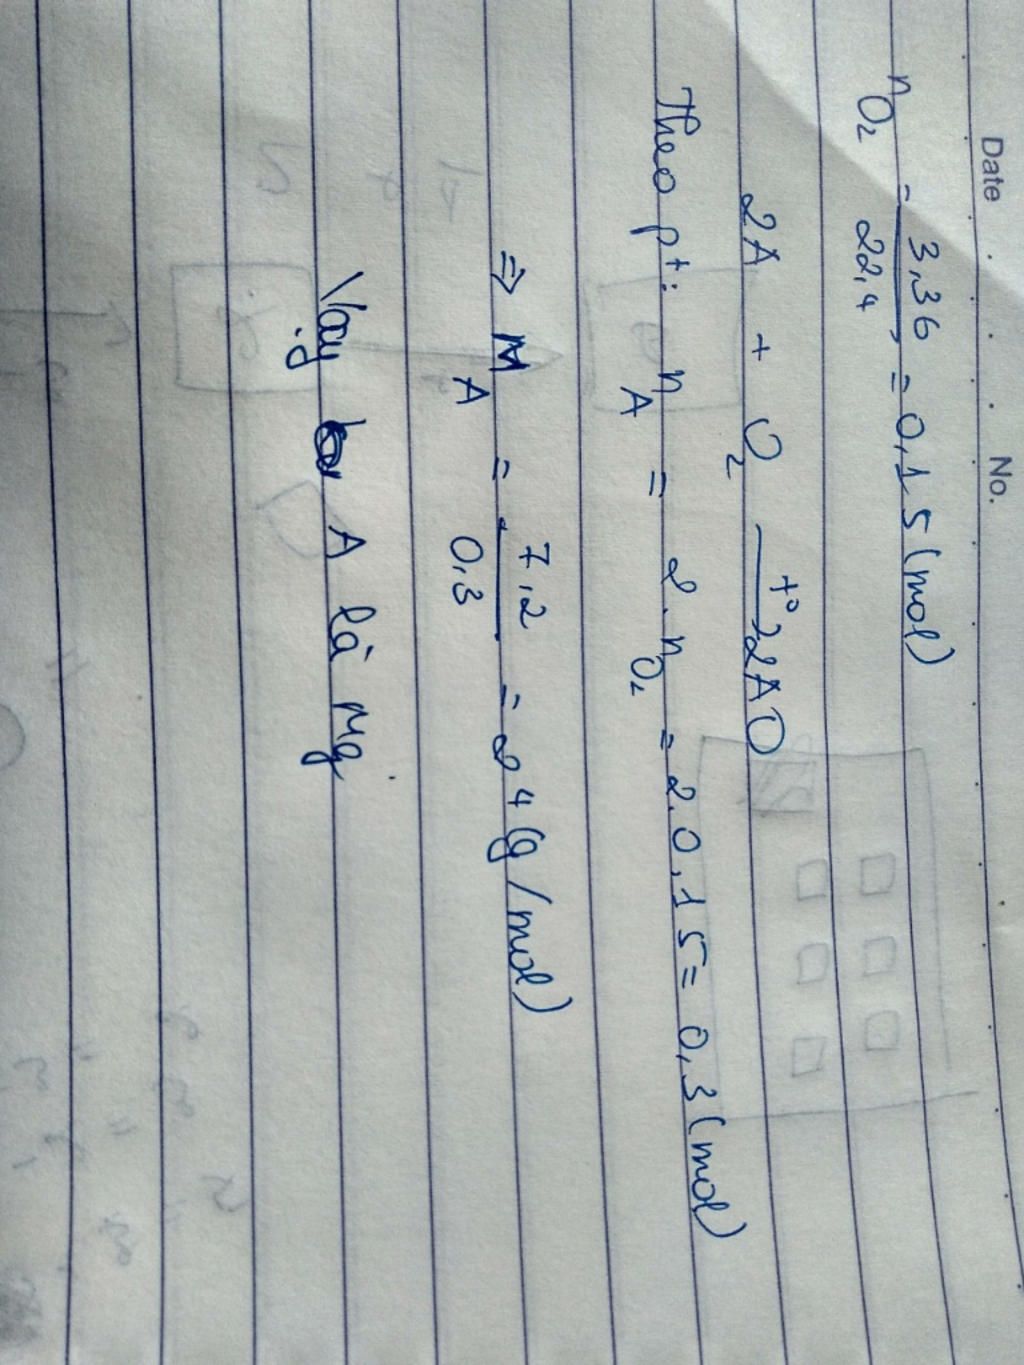 Date No.
n O₂ = 3,36 / 22,4 = 0,15 (mol)
2A + O₂ —t°→ 2AO
Theo pt: n A = 2.n O₂ = 2.0,15 = 0,3 (mol)
⇒ M A = 7,2 / 0,3 = 24 (g/mol)
Vậy A là Mg